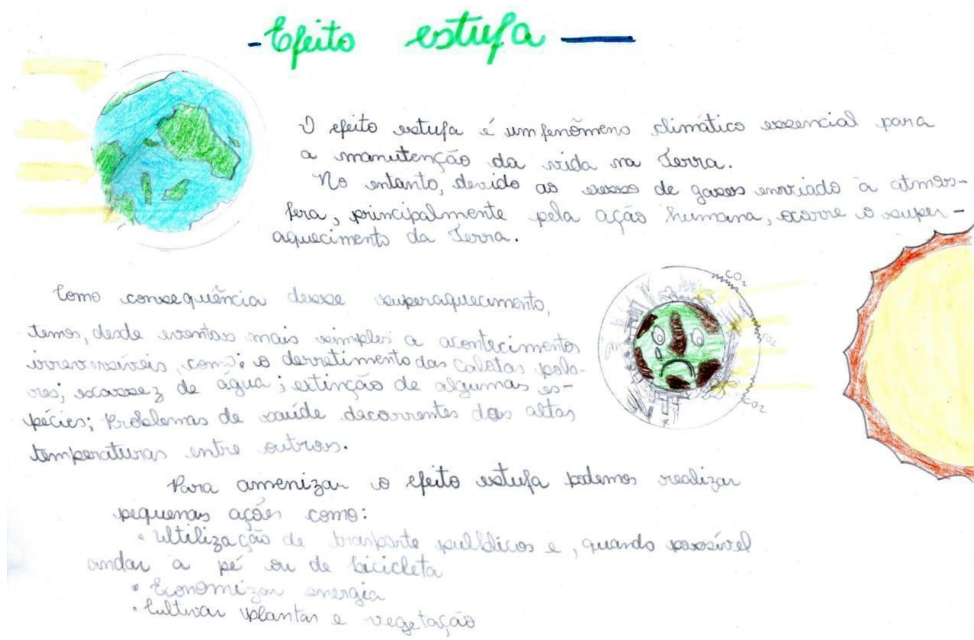 - Efeito estufa —
O efeito estufa é um fenômeno climático essencial para
a manutenção da vida na Terra.
No entanto, devido ao excesso de gases enviado à atmos-
fera, principalmente pela ação humana, ocorre o super-
aquecimento da Terra.
CO₂
CO₂
CO₂
Como consequência desse superaquecimento,
temos, desde eventos mais simples a acontecimentos
irreversíveis, como: o derretimento das calotas pola-
res; escassez de água; extinção de algumas es-
pécies; Problemas de saúde decorrentes das altas
temperaturas entre outros.
Para amenizar o efeito estufa podemos realizar
pequenas ações como:
• Ultilização de tranporte públicos e, quando possível
andar a pé ou de bicicleta
• Economizar energia
• Cultivar plantas e vegetação